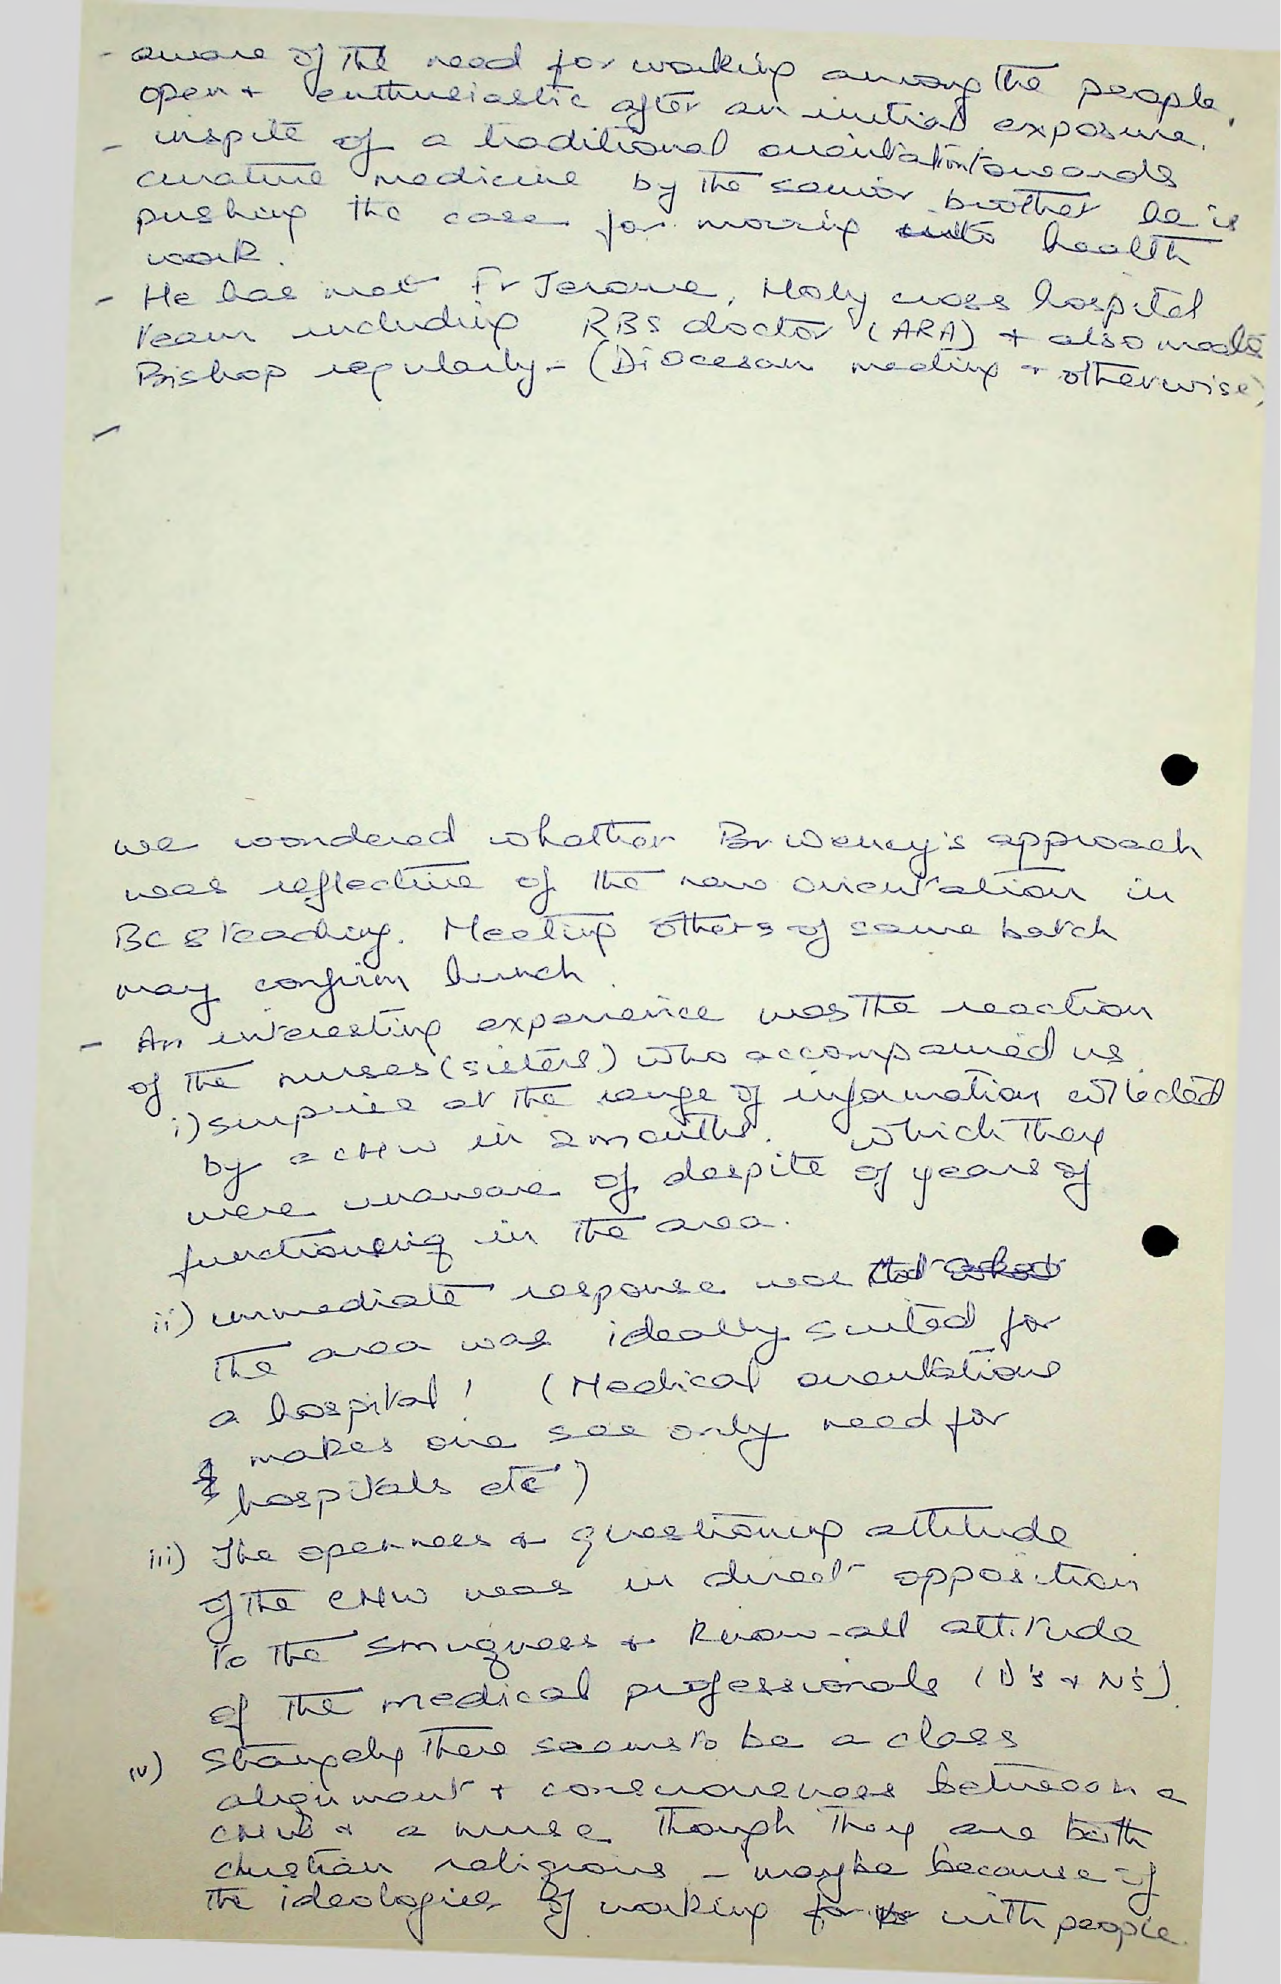 - aware of the need for working among the people,
open + enthusiastic after an initial exposure.
- inspite of a traditional orientation towards
curative medicine by the senior brother he is
pushing the case for moving into health
work.
- He has met Fr Jerome, Holy cross hospital
team including RBS doctor (ARA) + also meets
Bishop regularly - (Diocesan meeting + otherwise)
-
we wondered whether Br Wency's approach
was reflective of the new orientation in
BCs teaching. Meeting others of same batch
may confirm hunch.
- An interesting experience was the reaction
of the nurses (sisters) who accompanied us
i) surprise at the range of information collected
by a CHW in 2 months. which they
were unaware of despite of years of
functioning in the area.
ii) immediate response was that
the area was ideally suited for
a hospital! (Medical orientations
makes one see only need for
hospitals etc)
iii) The openness & questioning attitude
of the CHW was in direct opposition
to the smugness + know-all attitude
of the medical professionals (D's & N's)
iv) Strangely there seems to be a class
alignment + consciousness between a
CHW & a nurse though they are both
christian religious - maybe because of
the ideologies of working for with people.